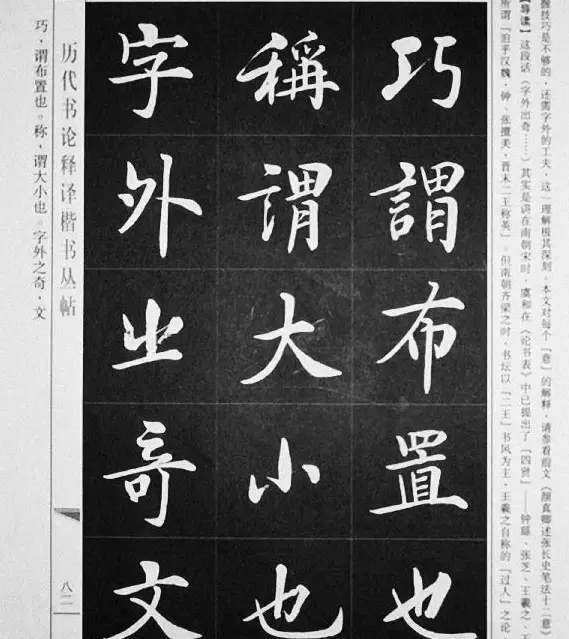 握技巧是不够的，还需字外的工夫，这一理解极其深刻。本文对每个『意』的解释，请参看前文《颜真卿述张长史笔法十二意》
【导读】这段话（字外出奇……）其实是讲在南朝宋时，虞和在《论书表》中已提出了『四贤』——钟繇、张芝、王羲之、
所谓『洎乎汉魏，钟、张擅美，晋末二王称英』。但南朝齐梁之时，书坛以『二王』书风为主，王羲之自称的『过人』之论
巧謂布置也
稱謂大小也
字外之奇文
历代书论释译楷书丛帖
八二
巧，谓布置也。称，谓大小也。字外之奇，文